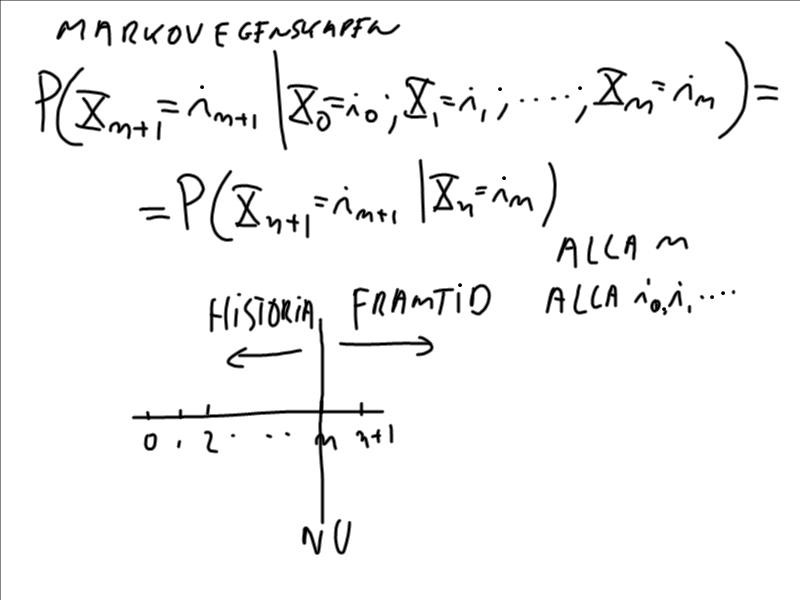 MARKOVEGENSKAPEN
P(X_{n+1} = i_{n+1} | X_0 = i_0; X_1 = i_1; .....; X_n = i_n) =
= P(X_{n+1} = i_{n+1} | X_n = i_n)
ALLA n
ALLA i_0, i_1 ....
HISTORIA FRAMTID
0 1 2 . . . n n+1
NU